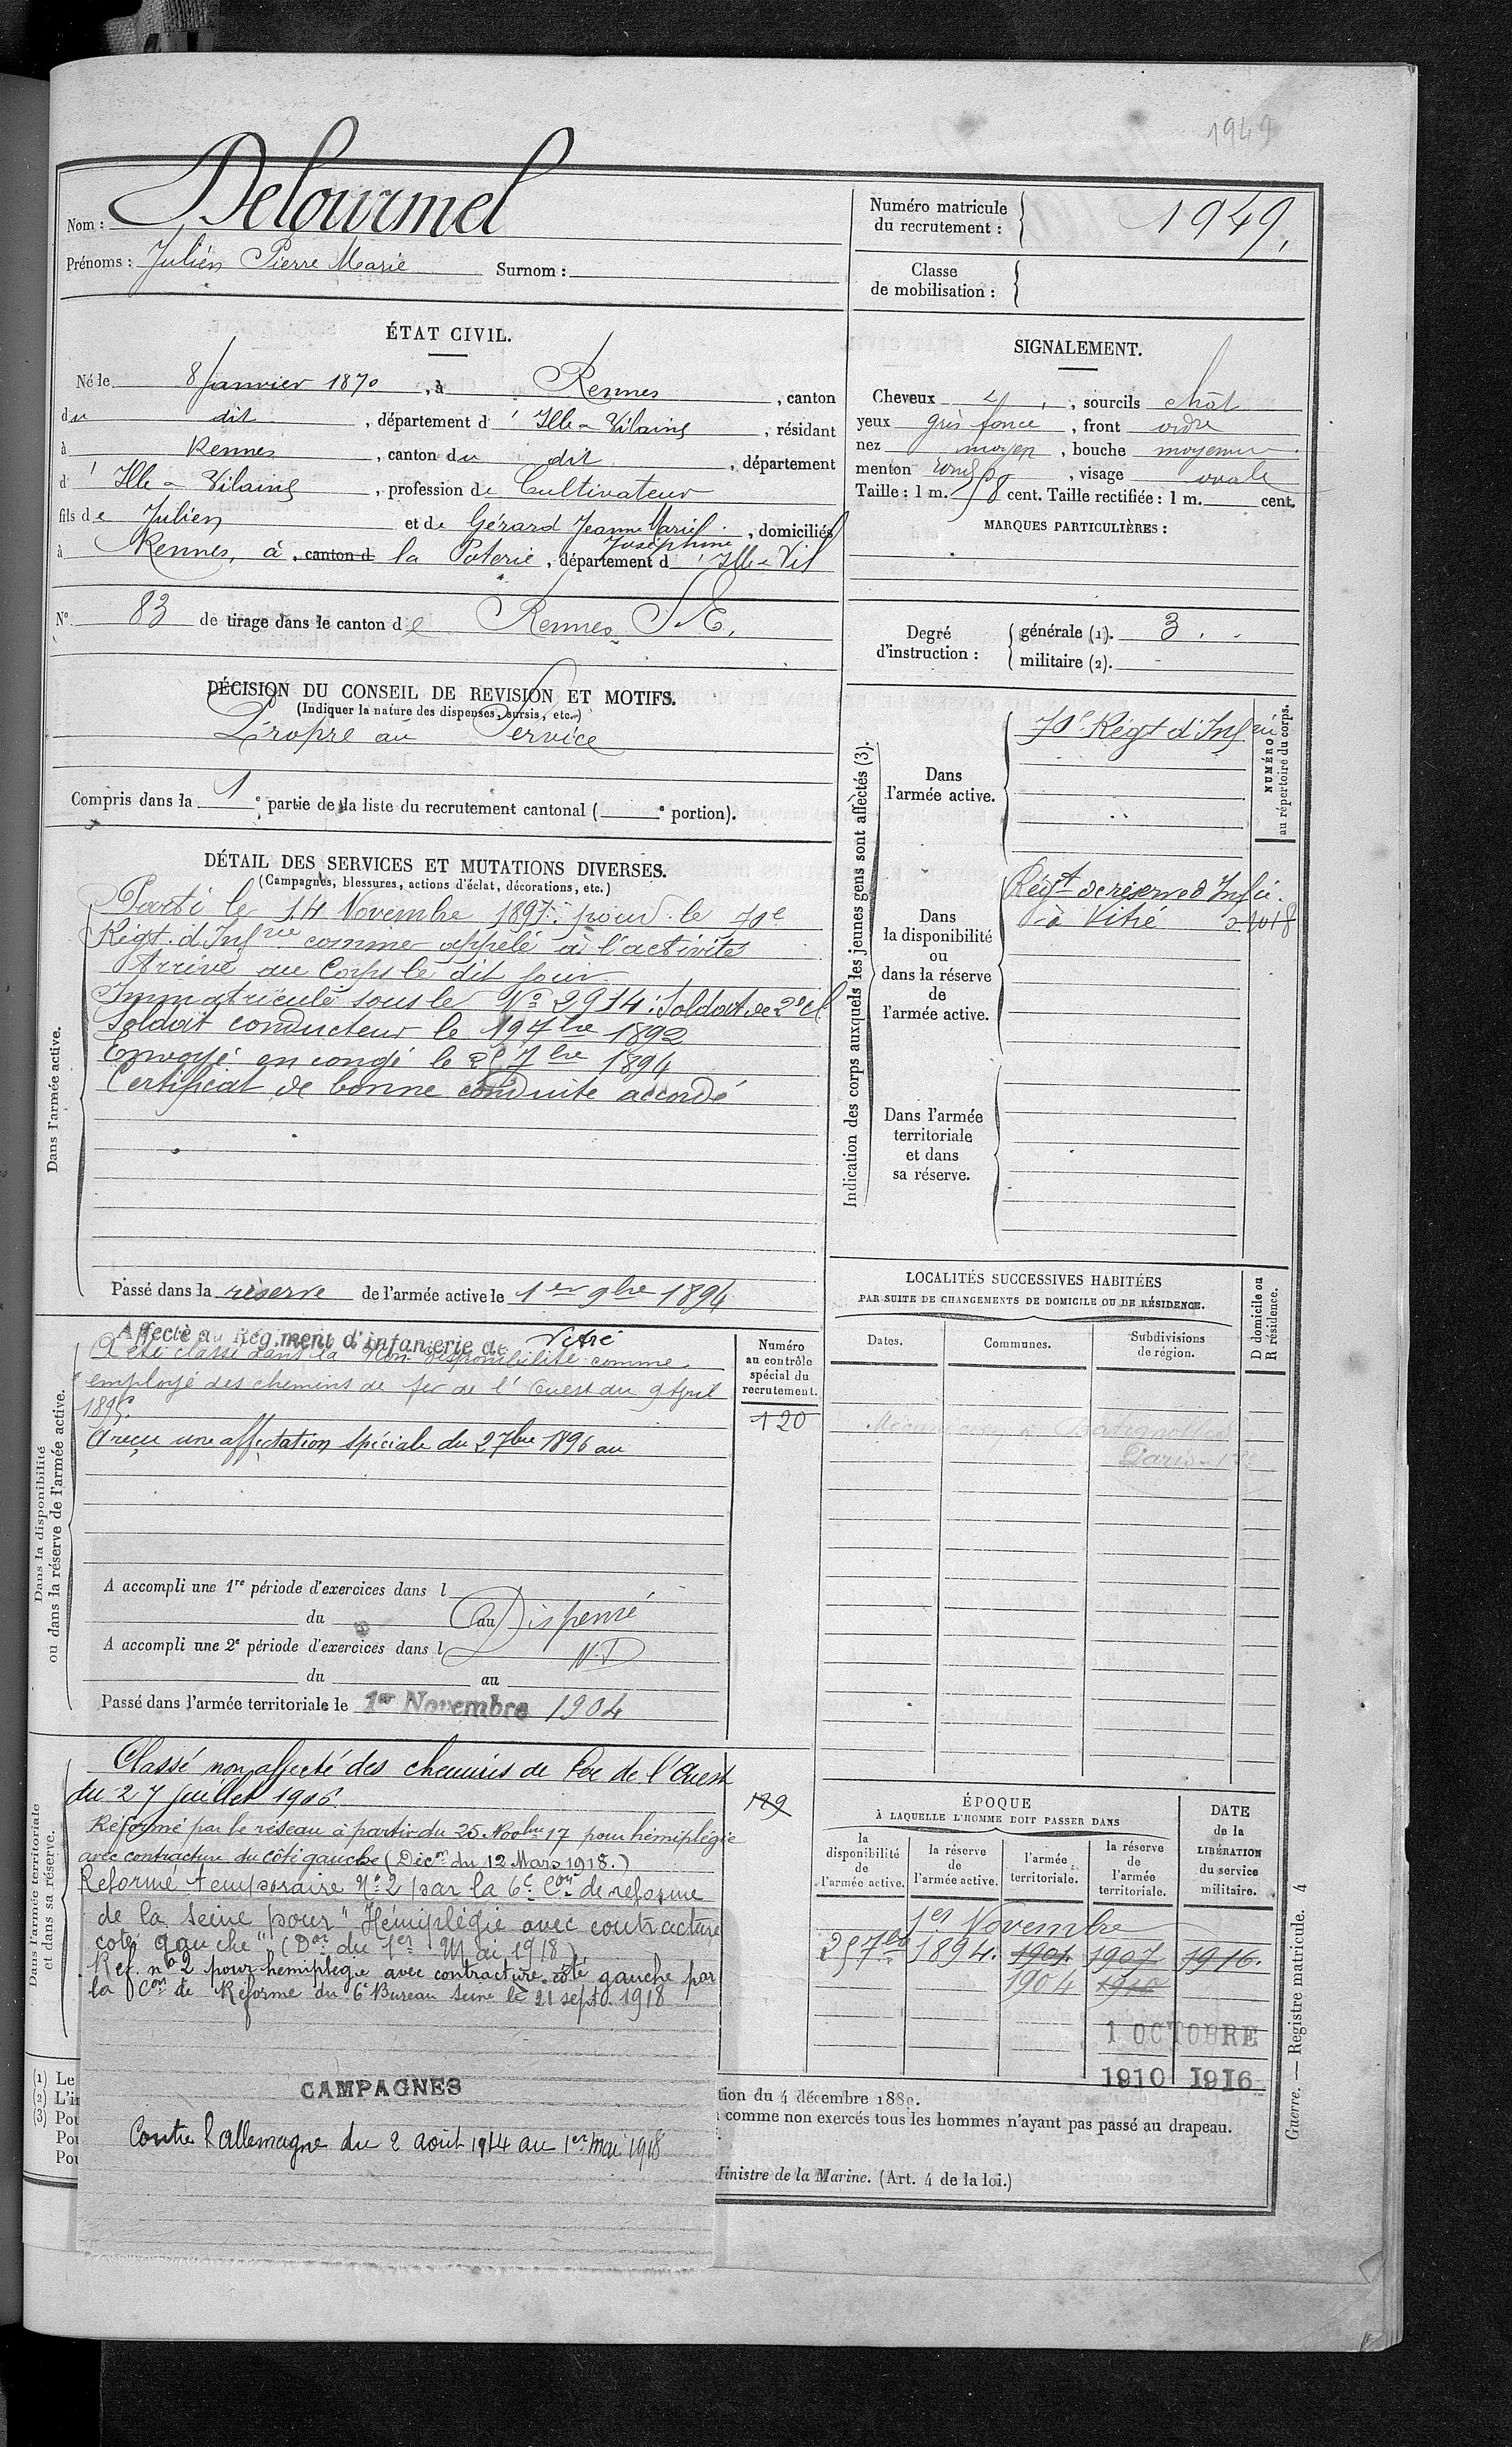 1949
Nom : Delourmel
Prénoms : Julien Pierre Marie Surnom :
Numéro matricule du recrutement : 1949.
Classe de mobilisation :
ÉTAT CIVIL.
Né le 8 Janvier 1870, à Rennes, canton
du dit, département d'Ille-&-Vilaine, résidant
à Rennes, canton du dit, département
d'Ille-&-Vilaine, profession de Cultivateur
fils de Julien et de Gérard Jeanne Marie Joséphine, domiciliés
à Rennes, à, canton d la Poterie, département d'Ille-&-Vil
N° 83 de tirage dans le canton de Rennes S.E.
SIGNALEMENT.
Cheveux , sourcils chât
yeux gris foncé, front ordre
nez moyen, bouche moyenne
menton rond, visage ovale
Taille : 1 m. 58 cent. Taille rectifiée : 1 m. cent.
MARQUES PARTICULIÈRES :
Degré d'instruction : générale (1). 3.
militaire (2).
DÉCISION DU CONSEIL DE REVISION ET MOTIFS.
(Indiquer la nature des dispenses, sursis, etc.)
Propre au Service
Compris dans la 1e partie de la liste du recrutement cantonal ( e portion).
DÉTAIL DES SERVICES ET MUTATIONS DIVERSES.
(Campagnes, blessures, actions d'éclat, décorations, etc.)
Dans l'armée active.
Parti le 14 Novembre 1891 pour le 70e
Régt. d'Infrie comme appelé à l'activité
Arrivé au Corps le dit jour
Immatriculé sous le No 2914 : Soldat de 2e cl
Soldat conducteur le 19 7bre 1892
Envoyé en congé le 25 7bre 1894
Certificat de bonne conduite accordé
Passé dans la réserve de l'armée active le 1er 9bre 1894
Indication des corps auxquels les jeunes gens sont affectés (3).
NUMÉRO au répertoire du corps.
Dans l'armée active.
70e Régt d'Infrie
Dans la disponibilité ou dans la réserve de l'armée active.
Régt de réserve d'Infie.
à Vitré 01018
Dans l'armée territoriale et dans sa réserve.
Dans la disponibilité ou dans la réserve de l'armée active.
Affecté au Régiment d'infanterie de Vitré
A été classé dans la Non disponibilité comme
employé des chemins de fer de l'Ouest du 9 Avril
1895.
A reçu une affectation spéciale du 2 7bre 1896 au
Numéro au contrôle spécial du recrutement.
120
A accompli une 1re période d'exercices dans l
du au Dispensé
A accompli une 2e période d'exercices dans l N.D
du au
Passé dans l'armée territoriale le 1er Novembre 1904
LOCALITÉS SUCCESSIVES HABITÉES
PAR SUITE DE CHANGEMENTS DE DOMICILE OU DE RÉSIDENCE.
Dates. Communes. Subdivisions de région. D domicile ou R résidence.
Batignolles
Paris
Dans l'armée territoriale et dans sa réserve.
Classé non affecté des chemins de fer de l'Ouest
du 27 juillet 1906.
129
Réformé par le réseau à partir du 25 Novbre 17 pour hémiplégie
avec contracture du côté gauche (Décon du 12 Mars 1918.)
Réformé temporaire No 2 par la 6e Con de réforme
de la Seine pour "Hémiplégie avec contracture
coté gauche" (Don du 1er Mai 1918)
Ref. no 2 pour hemiplegie avec contracture coté gauche par
la Con de Réforme du 6e Bureau Seine le 21 sept. 1918
CAMPAGNES
Contre l'allemagne du 2 août 1914 au 1er mai 1918
ÉPOQUE
À LAQUELLE L'HOMME DOIT PASSER DANS
la disponibilité de l'armée active. la réserve de l'armée active. l'armée territoriale. la réserve de l'armée territoriale.
DATE de la LIBÉRATION du service militaire.
1er Novembre
25 7bre 1894. 1901. 1907 1916.
1904 1910
1 OCTOBRE
1910 1916
(1) Le
(2) L'in
(3) Pou
Pou
Pou
tion du 4 décembre 1889.
comme non exercés tous les hommes n'ayant pas passé au drapeau.
Ministre de la Marine. (Art. 4 de la loi.)
Guerre. — Registre matricule. 4